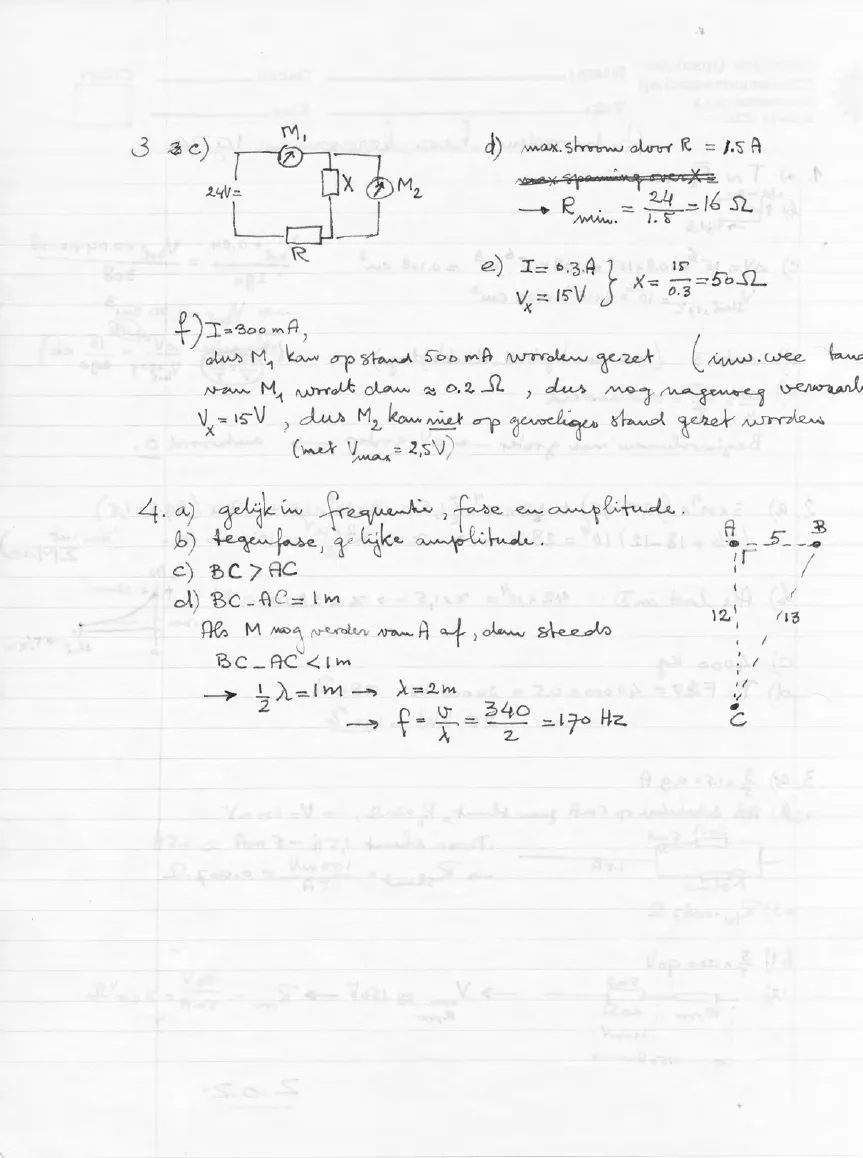 3 c)
M₁
24V=
X
M₂
R
d) max. stroom door R = 1.5 A
max spanning over X =
→ Rmin. = 24/1.5 = 16 Ω
e) I = 0.3 A } X = 15/0.3 = 50 Ω
Vx = 15 V
f) I = 300 mA,
dus M₁ kan op stand 500 mA worden gezet (inw. wee tand
van M₁ wordt dan ≈ 0.2 Ω , dus nog nagenoeg verwaarl
Vx = 15 V , dus M₂ kan niet op gevoeliger stand gezet worden
(met Vmax = 2,5V)
4. a) gelijk in frequentie, fase en amplitude.
b) tegenfase, gelijke amplitude.
c) BC > AC
d) BC - AC = 1 m
Als M nog verder van A af, dan steeds
BC - AC < 1 m
→ ½ λ = 1 m → λ = 2 m
→ f = v/λ = 340/2 = 170 Hz
A 5 B
12 13
C